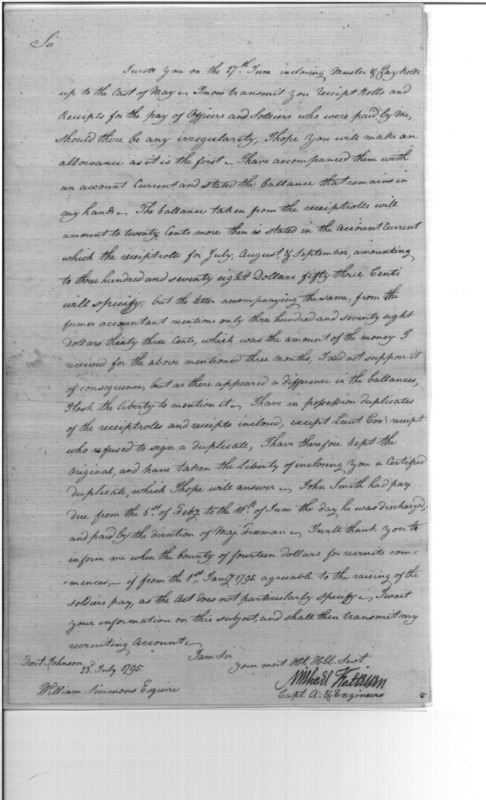 Sir
I wrote you on the 27th June inclosing Muster & Pay Rolls
up to the last of May. I now transmit you receipt rolls and
Receipts for the pay of Officers and Soldiers who were paid by me,
should there be any irregularity, I hope you will make an
allowance as it is the first. I have accompanied them with
an account Current and stated the ballance that remains in
my hands. The ballance taken from the receiptrolls will
amount to twenty Cents more then is stated in the account Current
which the receiptroll for July, August & September, amounting
to three hundred and seventy eight Dollars fifty three Cents
will specify, but the letter accompanying the same, from the
former accountant mentions only three hundred and seventy eight
dollars thirty three Cents, which was the amount of the money I
received for the above mentioned three months, I did not suppose it
of consequence, but as there appeared a difference in the ballances,
I took the liberty to mention it. I have in possession duplicates
of the receiptrolls and receipts inclosed, except Lieut receipt
who refused to sign a duplicate, I have therefore kept the
original, and have taken the liberty of inclosing you a Certified
duplicate, which I hope will answer. John Smith had pay
due from the 5th of Feby to the 18th of June the day he was discharged,
and paid by the direction of Maj. Freeman. I will thank you to
inform me when the bounty of fourteen dollars for recruits com-
-mences, if from the 1st Jany 1795 agreeable to the raising of the
soldiers pay, as the Act does not particularly specify. I wait
your information on this subject, and shall then transmit my
recruiting Account.
I am Sir
your most Obt. Hble Servt
Fort Johnson
23d July 1795
William Simmons Esquire
Michael Kalteisen
Capt. A. & Engineers